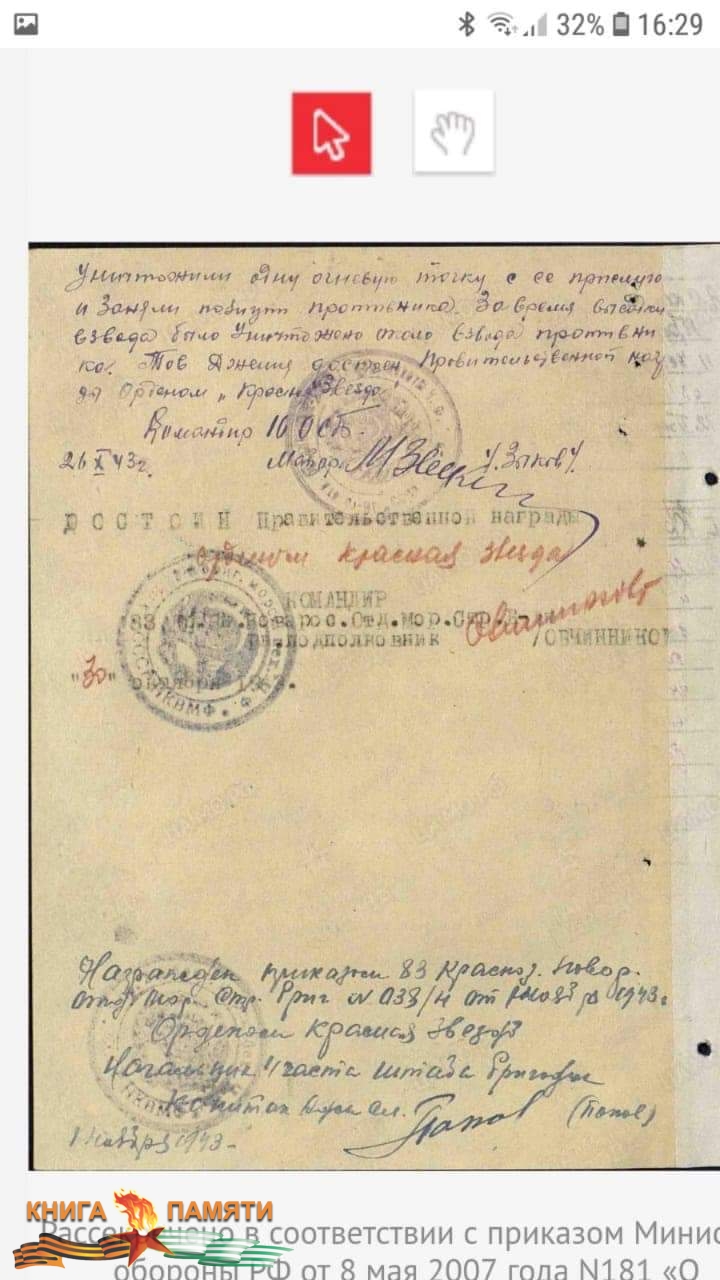 32% 16:29
Уничтожили одну огневую точку с ее прислуго
и Заняли позицию противника. За время высадки
взвода было Уничтожено около взвода противни
ка. Тов достоен Правительственной наг
Орденом „Красн Звезда"
Командир 10 ОСБ.
26 X 43г. Майор /Зыков/.
ДОСТОЕН Правительственной награды
орденом Красная Звезда
КОМАНДИР
83 Отд.мор.Стр.
подполковник /ОВЧИННИКОВ
"30" октября
Награжден приказом 83 Красноз. Новор.
отд. Мор. Стр. Бриг № 038/Н от 1943г
Орденом Красная Звезда
Начальник 4 части штаба Бригады
Капитан Попов (Попов)
1 ноября 1943
КНИГА ПАМЯТИ
Рассекречено в соответствии с приказом Минис
обороны РФ от 8 мая 2007 года N181 «О